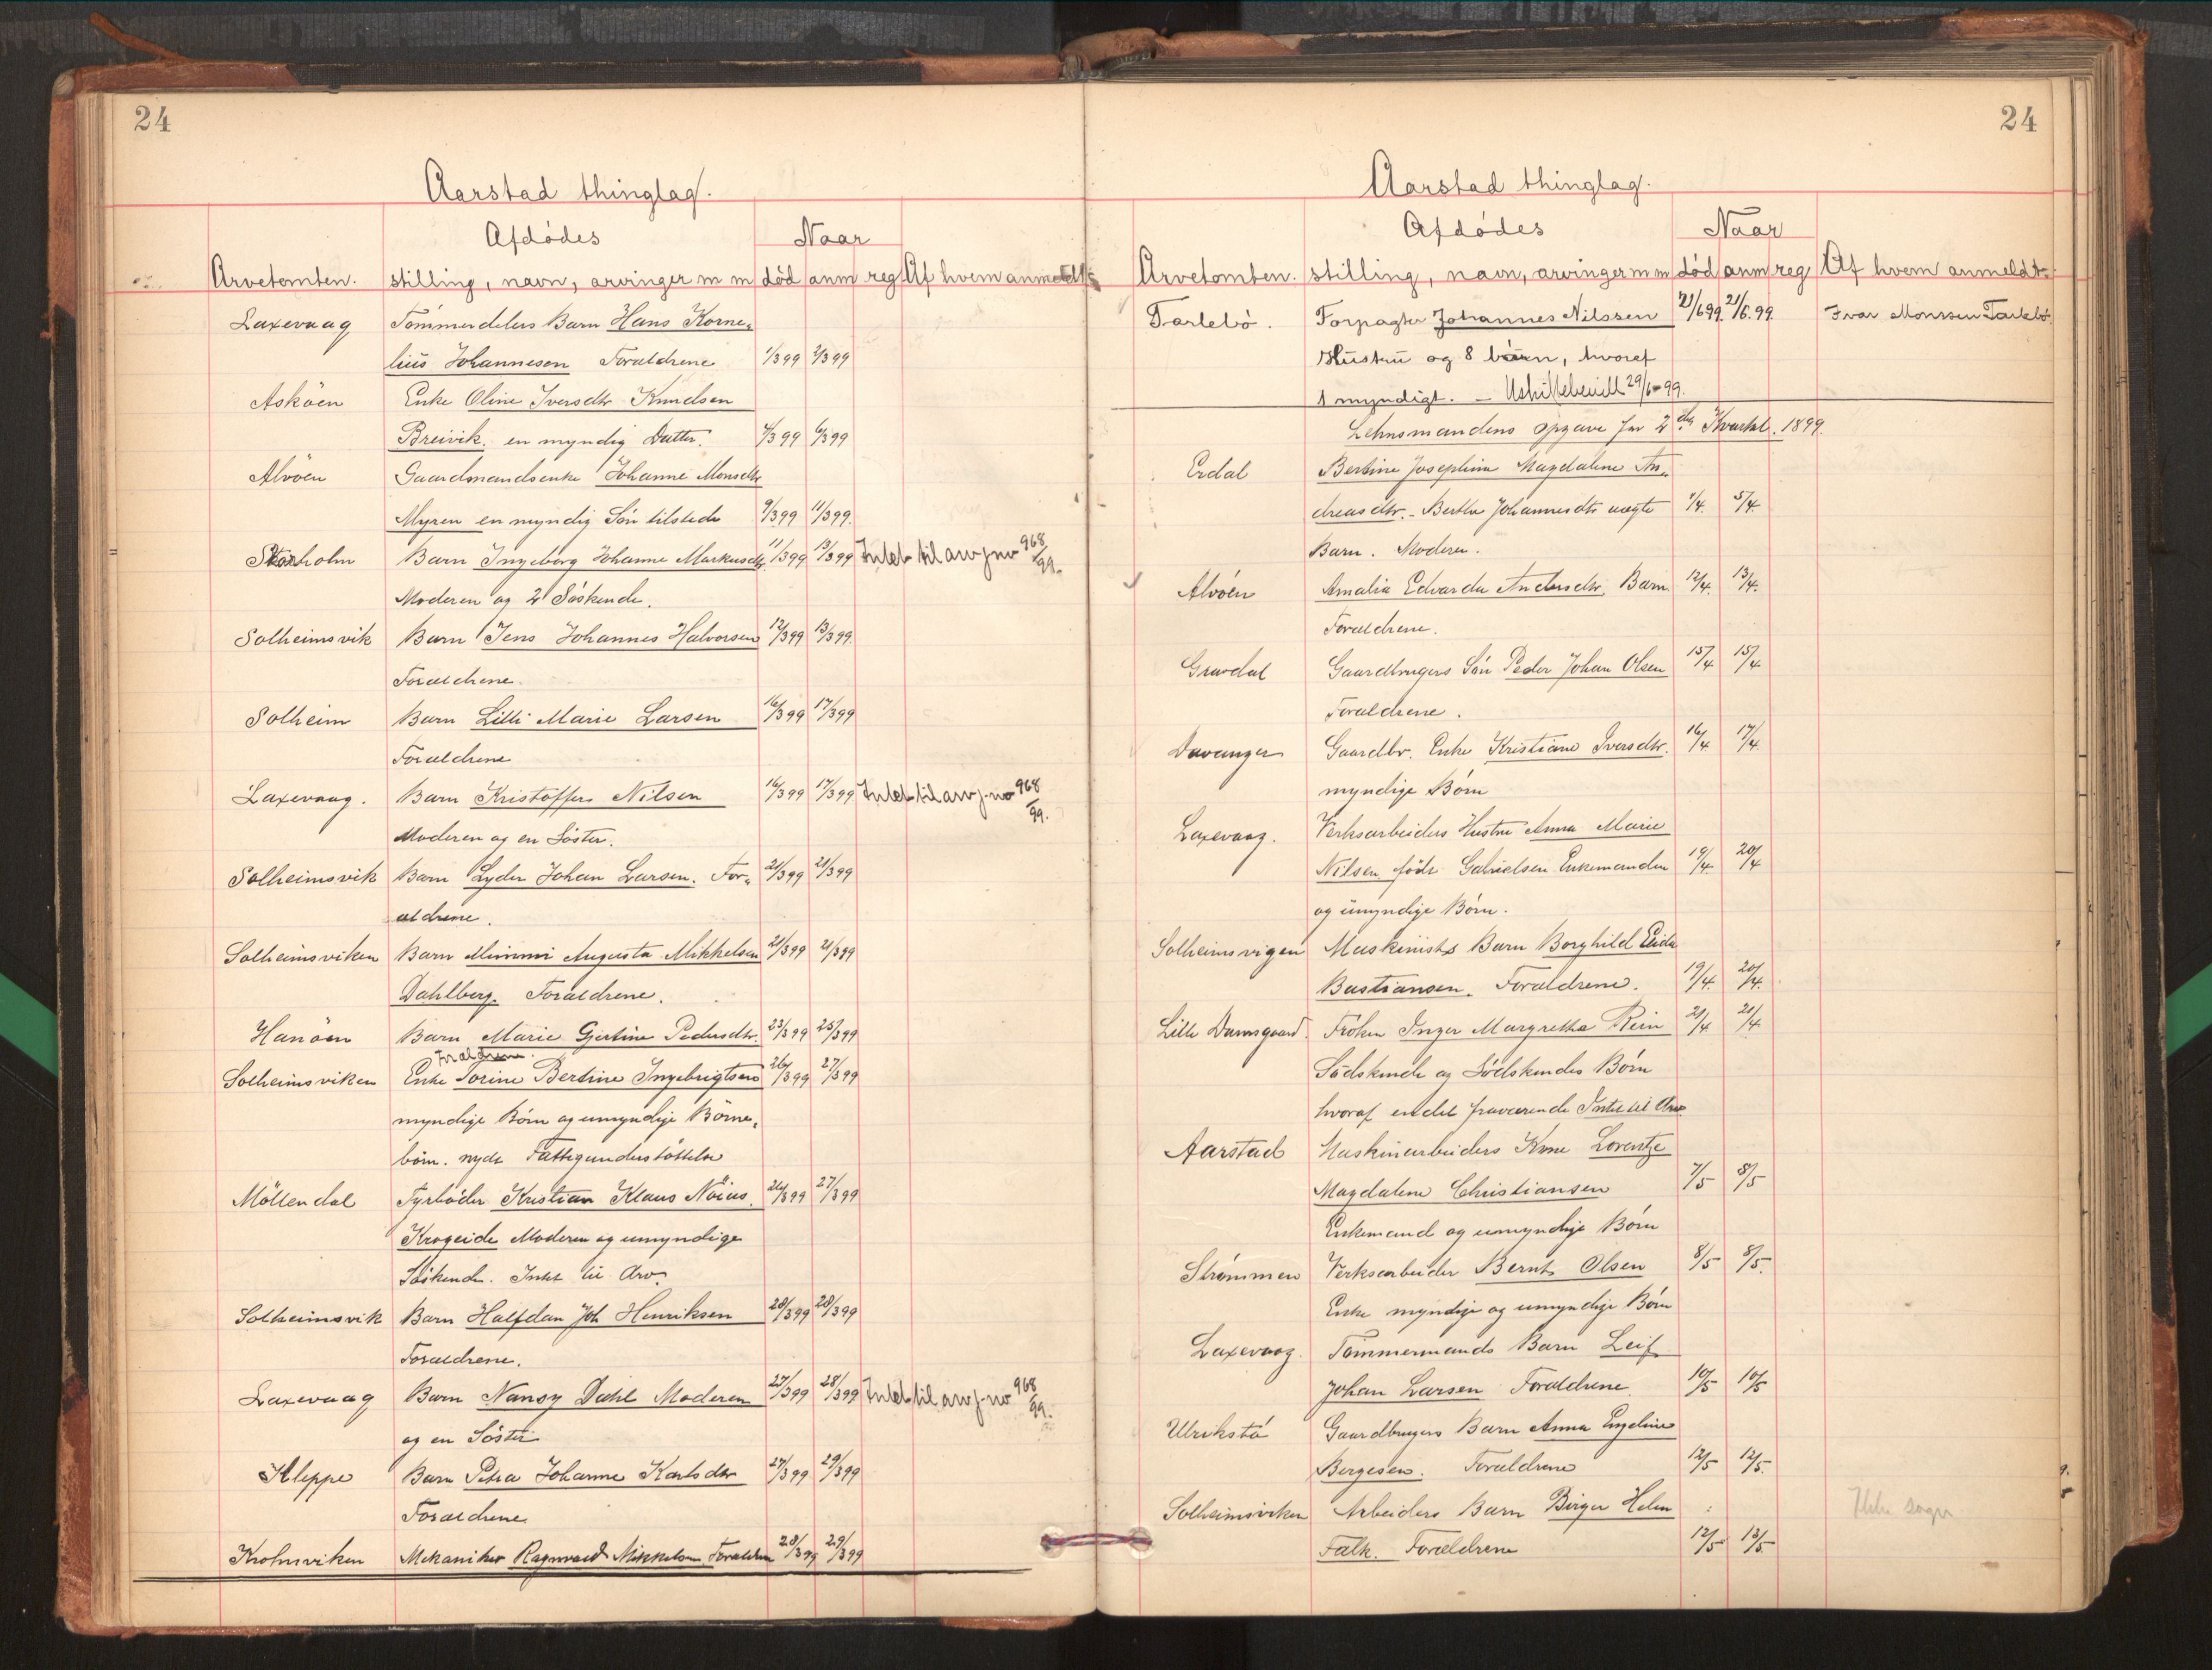 24
Aarstad thinglag.
Afdödes Naar
Arvetomten. stilling, navn, arvinger m m död anm reg Af hvem anmeldt
Laxevaag Tömmerdelers Barn Hans Korne„
lius Johannesen Forældrene 1/3 99 2/3 99
Asköen Enke Oline Iversdtr Knudsen
Breivik. en myndig Datter. 4/3 99 6/3 99
Alvöen Gaardmandsenke Johanne Monsdtr
Myren en myndig Sön tilstede 9/3 99 11/3 99.
Storholm Barn Ingeborg Johanne Markusdtr. 11/3 99 13/3 99 Intet til arv j no 968/99.
Moderen og 2 Söskende.
Solheimsvik Barn Jens Johannes Halvorsen 12/3 99 13/3 99.
Forældrene.
Solheim Barn Lilli Marie Larsen 16/3 99 17/3 99
Forældrene
Laxevaag. Barn Kristoffer Nilsen 16/3 99 17/3 99 Intet til arv j. no 968/99.
Moderen og en Söster.
Solheimsvik Barn Lyder Johan Larsen. For„ 21/3 99 21/3 99
ældrene.
Solheimsviken Barn Mimmi Augusta Mikkelsen 21/3 99 21/3 99
Dahlberg. Forældrene.
Hanöen Barn Marie Gjertine Pedersdtr. 23/3 99 25/3 99
Forældrene.
Solheimsviken Enke Sorine Bertine Ingebrigtsen 26/3 99 27/3 99
myndige Börn og umyndige Börne„
börn. nydt Fattigunderstöttelse
Möllendal Fyrböder Kristian Klaus Nöius. 26/3 99 27/3 99
Krogeide Moderen og umyndige
Söskende. Intet til Arv.
Solheimsvik Barn Halfdan Joh Henriksen 28/3 99 28/3 99
Forældrene.
Laxevaag Barn Nansy Dahl Moderen 27/3 99 28/3 99 Intet til arv j. no 968/99.
og en Söster
Kleppe Barn Petra Johanne Karlsdtr 27/3 99 29/3 99
Forældrene
Krohnsviken Mekaniker Ragnvald Mikkelsen Forældrene 28/3 99 29/3 99
24
Aarstad thinglag.
Afdödes Naar
Arvetomten. stilling, navn, arvinger m m död anm reg Af hvem anmeldt.
Tarlebö. Forpagter Johannes Nilssen 21/6 99. 21/6. 99. Ivar Monssen Tarlebö.
Hustru og 8 börn, hvoraf
1 myndigt. – Uskiftebevill 29/6–99.
Lehnsmandens opgave for 2det Kvartal. 1899.
Erdal Bertine Josephine Magdalene An„
dreasdtr. – Berthe Johannesdtr uægte 1/4. 5/4.
Barn. Moderen.
Alvöen Amalia Edvarda Andersdtr. Barn 12/4. 13/4.
Forældrene.
Gravdal Gaardbrugers Sön Peder Johan Olsen 15/4 15/4
Forældrene.
Davanger Gaardbr. Enke Kristiane Iversdtr. 16/4 17/4
myndige Börn
Laxevaag. Verksarbeiders Hustru Anna Marie
Nilsen födt Gabrielsen Enkemanden 19/4 20/4
og umyndige Börn.
Solheimsvigen Maskinists Barn Borghild Eida
Bastiansen. Forældrene. 19/4. 20/4.
Lille Damsgaard. Fröken Inger Margrethe Rein 21/4 21/4
Södskende og Södskendes Börn
hvoraf endel fraværende Intet til Arv
Aarstad Maskinarbeiders Kone Lorentze
Magdalene Christiansen 7/5 8/5
Enkemand og umyndige Börn
Strömmen Verksarbeider Bernt Olsen 8/5 8/5.
Enke myndige og umyndige Börn
Laxevaag. Tömmermands Barn Leif
Johan Larsen Forældrene 10/5 10/5
Ulrikstö Gaardbrugers Barn Anna Engeline
Bergesen. Forældrene 12/5 12/5.
Solheimsviken Arbeiders Barn Birger Helen
Falk. Forældrene 12/5 13/5